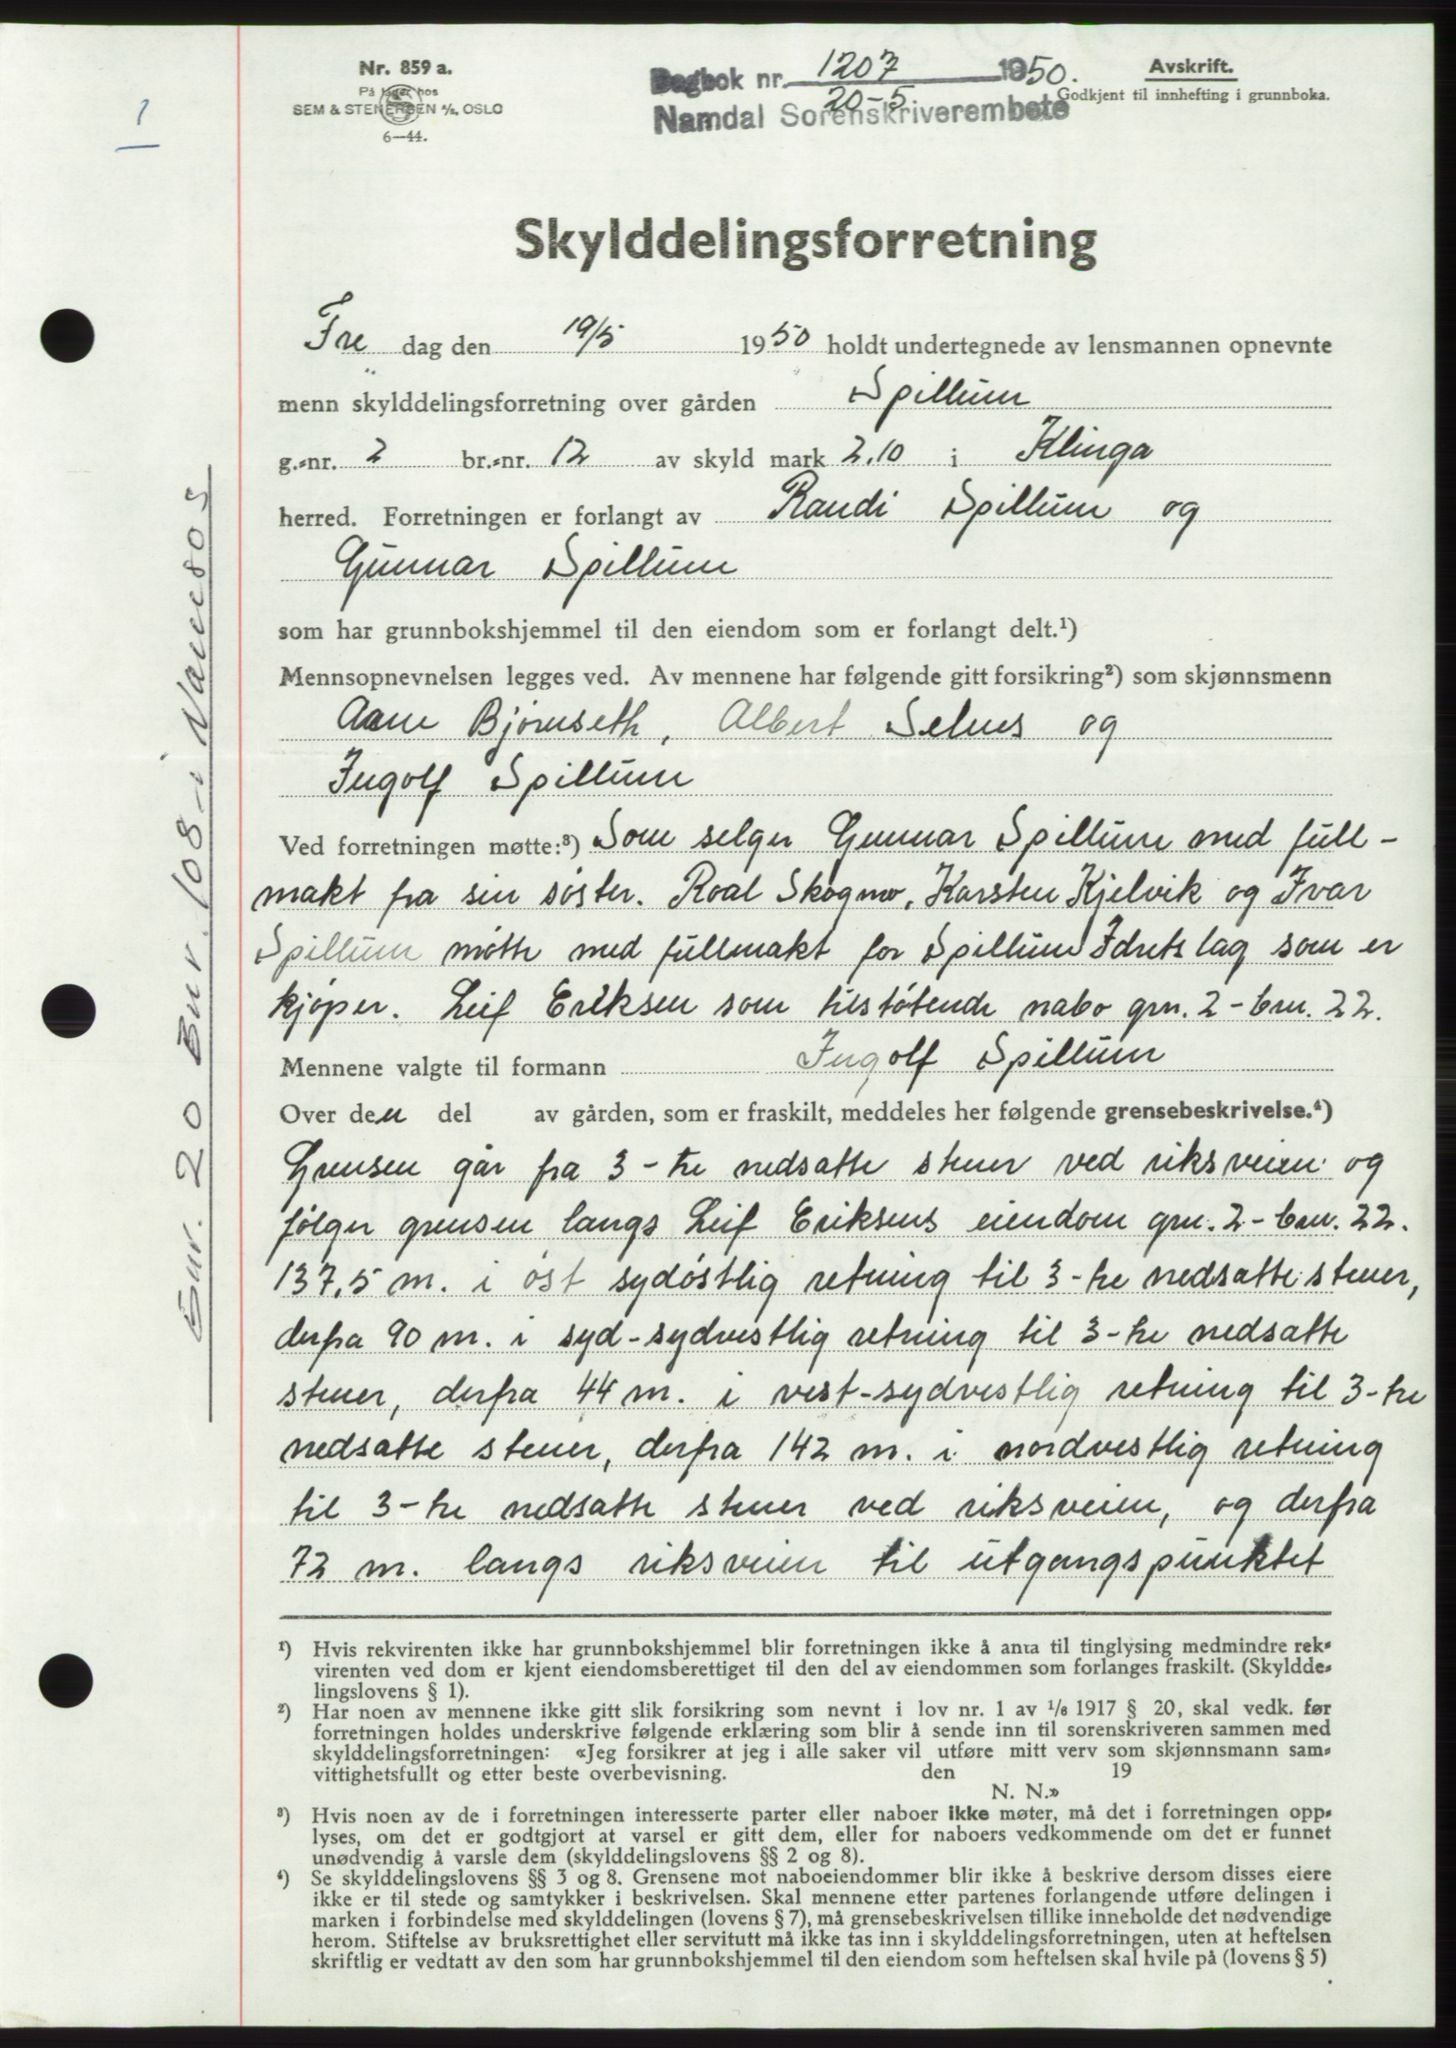 1
Nr. 859 a.
På lager hos
SEM & STENERSEN A/S, OSLO
6—44.
Dagbok nr. 1207 1950.
20-5
Namdal Sorenskriverembete
Avskrift.
Godkjent til innhefting i grunnboka.
Skylddelingsforretning
Fre dag den 19/5 1950 holdt undertegnede av lensmannen opnevnte
menn skylddelingsforretning over gården Spillum
g.-nr. 2 br.-nr. 12 av skyld mark 2.10 i Klinga
herred. Forretningen er forlangt av Randi Spillum og
Gunnar Spillum
som har grunnbokshjemmel til den eiendom som er forlangt delt.¹)
Mennsopnevnelsen legges ved. Av mennene har følgende gitt forsikring²) som skjønnsmenn
Arne Bjørnseth, Albert Selnes og
Ingolf Spillum
Ved forretningen møtte:³) Som selger Gunnar Spillum med full-
makt fra sin søster. Roal Skogmo, Karsten Kjelvik og Ivar
Spillum møtte med fullmakt for Spillum Idretslag som er
kjøper. Leif Eriksen som tilstøtende nabo grn. 2 - brn. 22.
Mennene valgte til formann Ingolf Spillum
Over den del av gården, som er fraskilt, meddeles her følgende grensebeskrivelse.⁴)
Grensen går fra 3 - tre nedsatte stener ved riksveien og
følger grensen langs Leif Eriksens eiendom grn. 2 - brn. 22.
137,5 m. i øst sydøstlig retning til 3 - tre nedsatte stener,
derfra 90 m. i syd-sydvestlig retning til 3 - tre nedsatte
stener, derfra 44 m. i vest-sydvestlig retning til 3 - tre
nedsatte stener, derfra 142 m. i nordvestlig retning
til 3 - tre nedsatte stener ved riksveien, og derfra
72 m. langs riksveien til utgangspunktet
¹) Hvis rekvirenten ikke har grunnbokshjemmel blir forretningen ikke å anta til tinglysing medmindre rek-
virenten ved dom er kjent eiendomsberettiget til den del av eiendommen som forlanges fraskilt. (Skyldde-
lingslovens § 1).
²) Har noen av mennene ikke gitt slik forsikring som nevnt i lov nr. 1 av 1/6 1917 § 20, skal vedk. før
forretningen holdes underskrive følgende erklæring som blir å sende inn til sorenskriveren sammen med
skylddelingsforretningen: «Jeg forsikrer at jeg i alle saker vil utføre mitt verv som skjønnsmann sam-
vittighetsfullt og etter beste overbevisning. den 19
N. N.»
³) Hvis noen av de i forretningen interesserte parter eller naboer ikke møter, må det i forretningen opp-
lyses, om det er godtgjort at varsel er gitt dem, eller for naboers vedkommende om det er funnet
unødvendig å varsle dem (skylddelingslovens §§ 2 og 8).
⁴) Se skylddelingslovens §§ 3 og 8. Grensene mot naboeiendommer blir ikke å beskrive dersom disses eiere
ikke er til stede og samtykker i beskrivelsen. Skal mennene etter partenes forlangende utføre delingen i
marken i forbindelse med skylddelingen (lovens § 7), må grensebeskrivelsen tillike inneholde det nødvendige
herom. Stiftelse av bruksrettighet eller servitutt må ikke tas inn i skylddelingsforretningen, uten at heftelsen
skriftlig er vedtatt av den som har grunnbokshjemmel til den eiendom som heftelsen skal hvile på (lovens § 5)
Gnr. 20 Bnr. 108 i Namsos